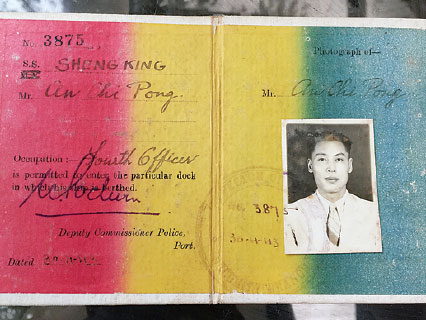 No. 3875
S.S. SHENGKING
Mr. An Chi Pong.
Occupation :— Fourth Officer
is permitted to enter the particular dock
in which his ship is berthed.
Deputy Commissioner Police,
Port.
Dated 30-1-43
Photograph of—
Mr. An Chi Pong
No. 3875
30-1-43